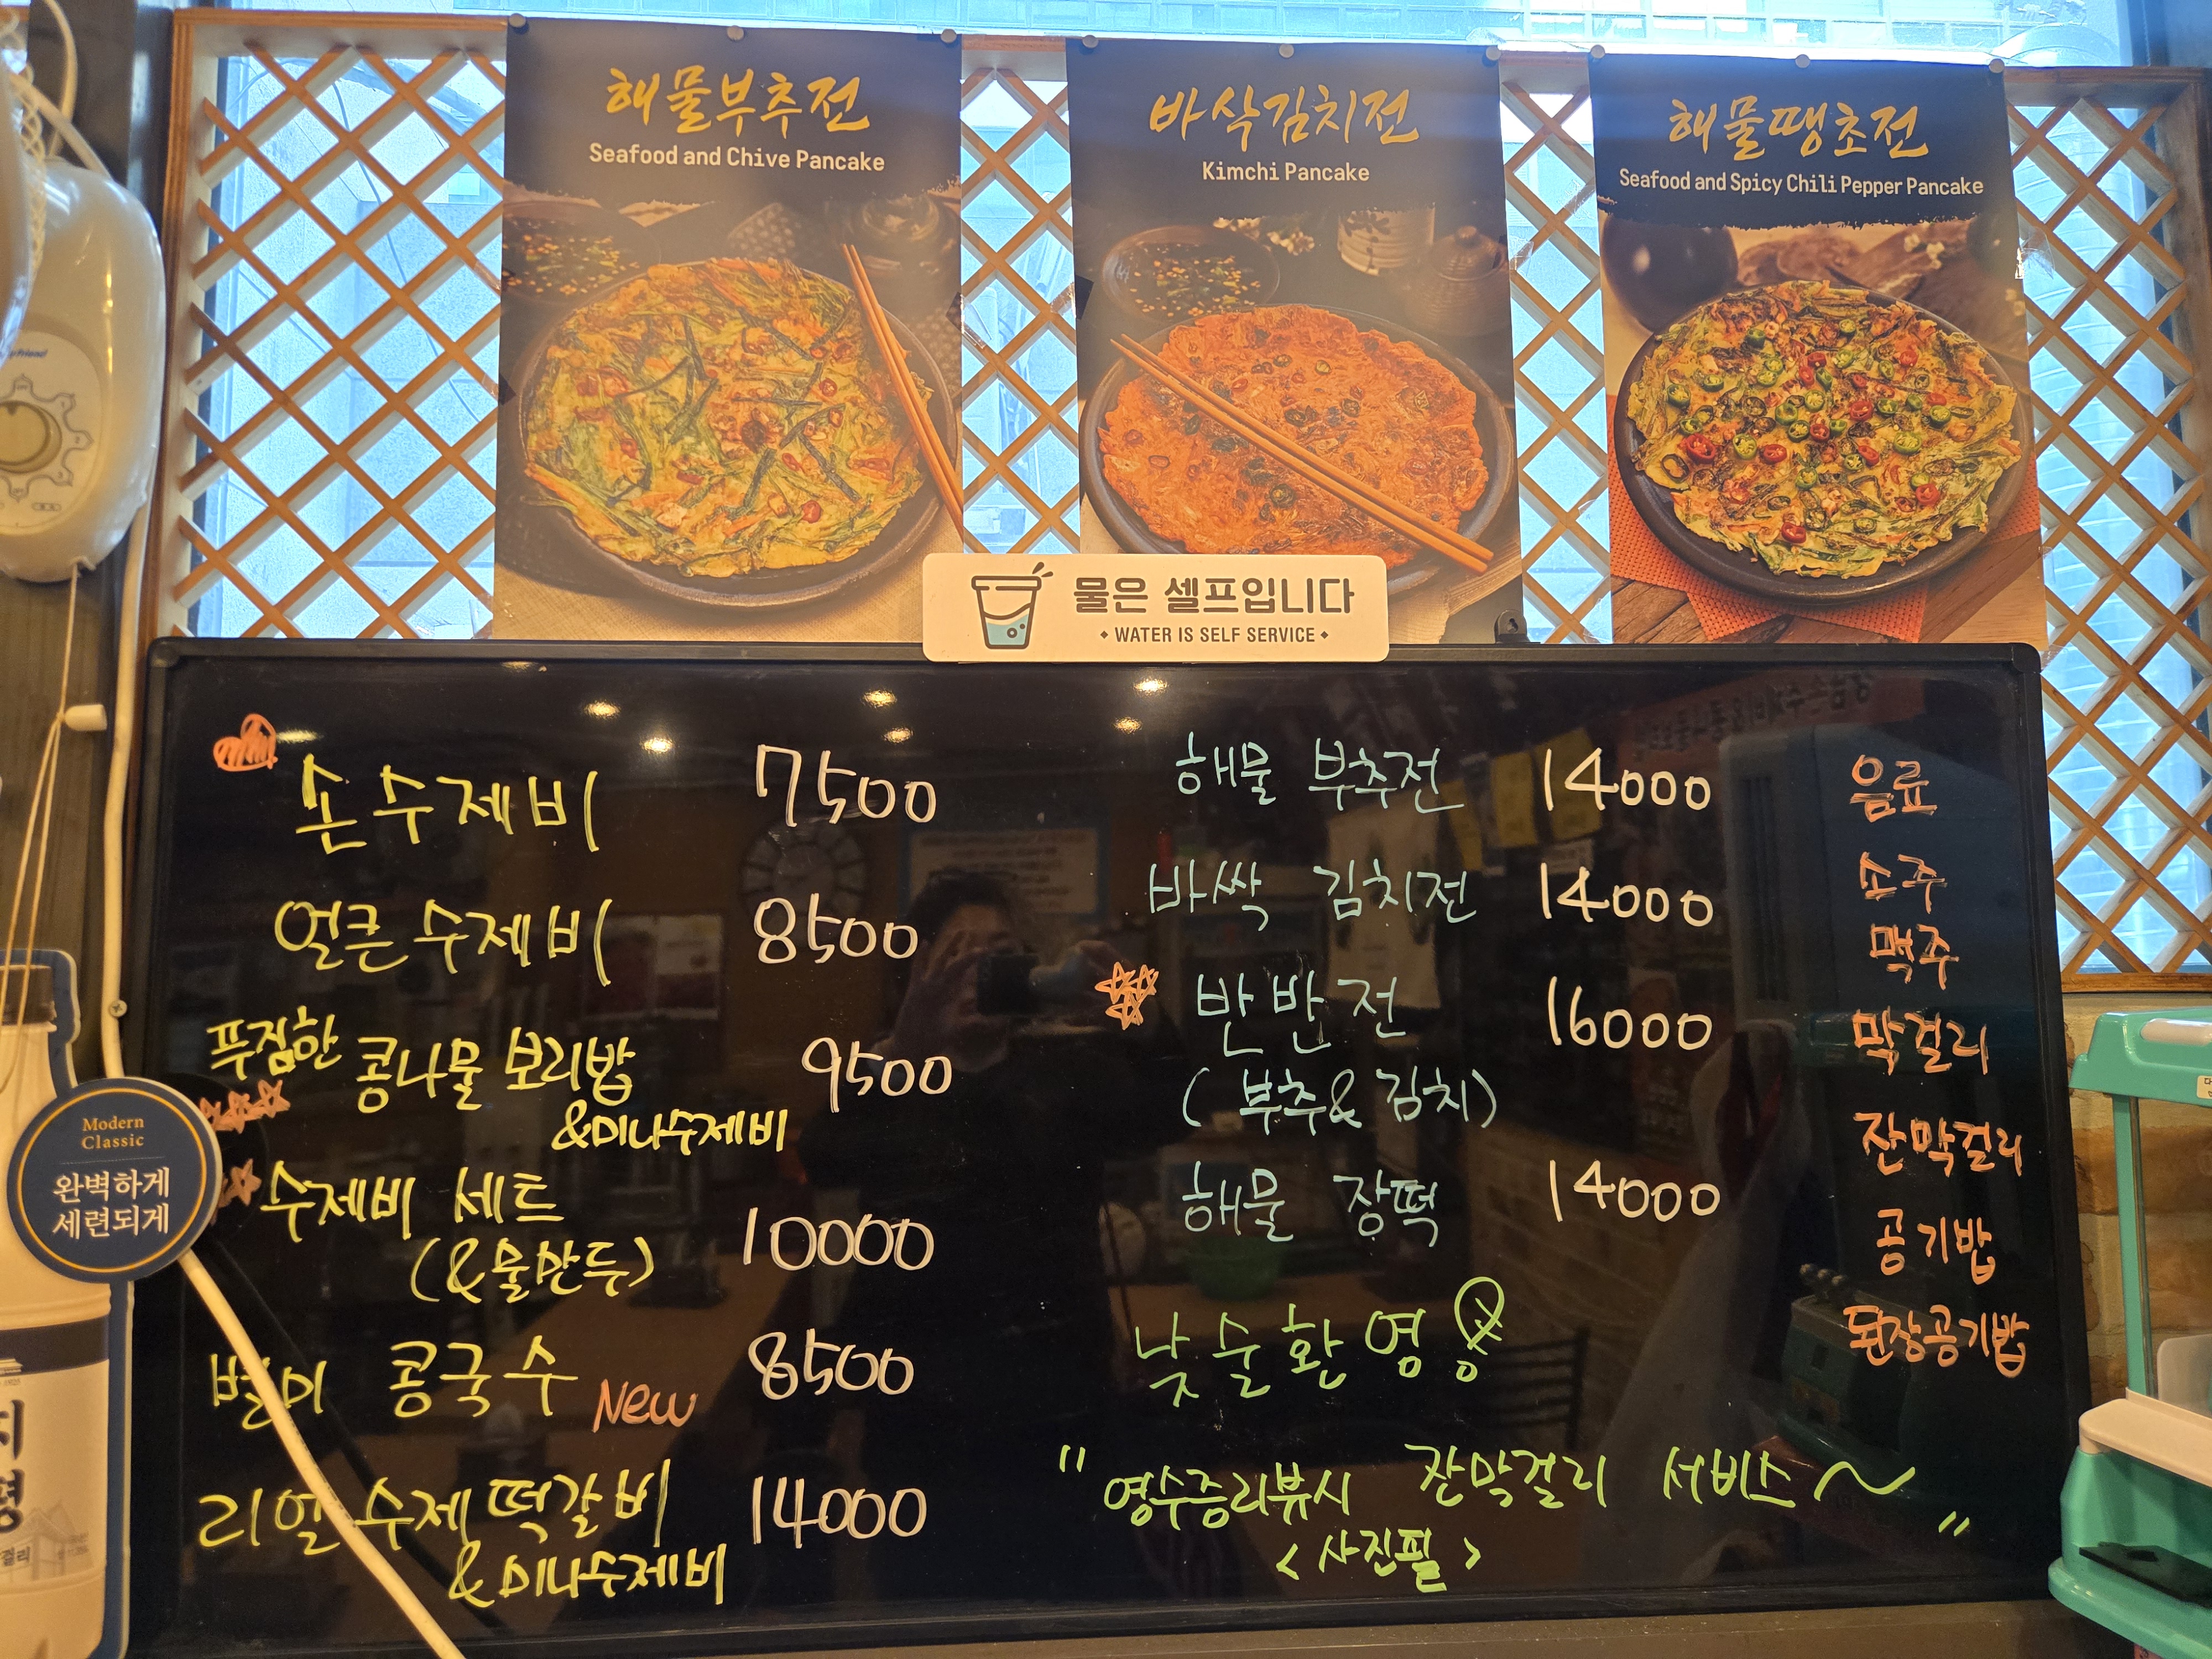 해물부추전
Seafood and Chive Pancake
바삭김치전
Kimchi Pancake
해물땡초전
Seafood and Spicy Chili Pepper Pancake
물은 셀프입니다
• WATER IS SELF SERVICE •
손수제비 7500
얼큰수제비 8500
푸짐한 콩나물 보리밥 9500
&미나수제비
수제비 세트
(&물만두) 10000
별미 콩국수 New 8500
리얼 수제 떡갈비 14000
& 미나수제비
해물 부추전 14000
바싹 김치전 14000
반반전 16000
(부추&김치)
해물 장떡 14000
낮술환영
" 영수증리뷰시 잔막걸리 서비스~ "
<사진필>
음료
소주
맥주
막걸리
잔막걸리
공기밥
된장공기밥
Modern
Classic
완벽하게
세련되게